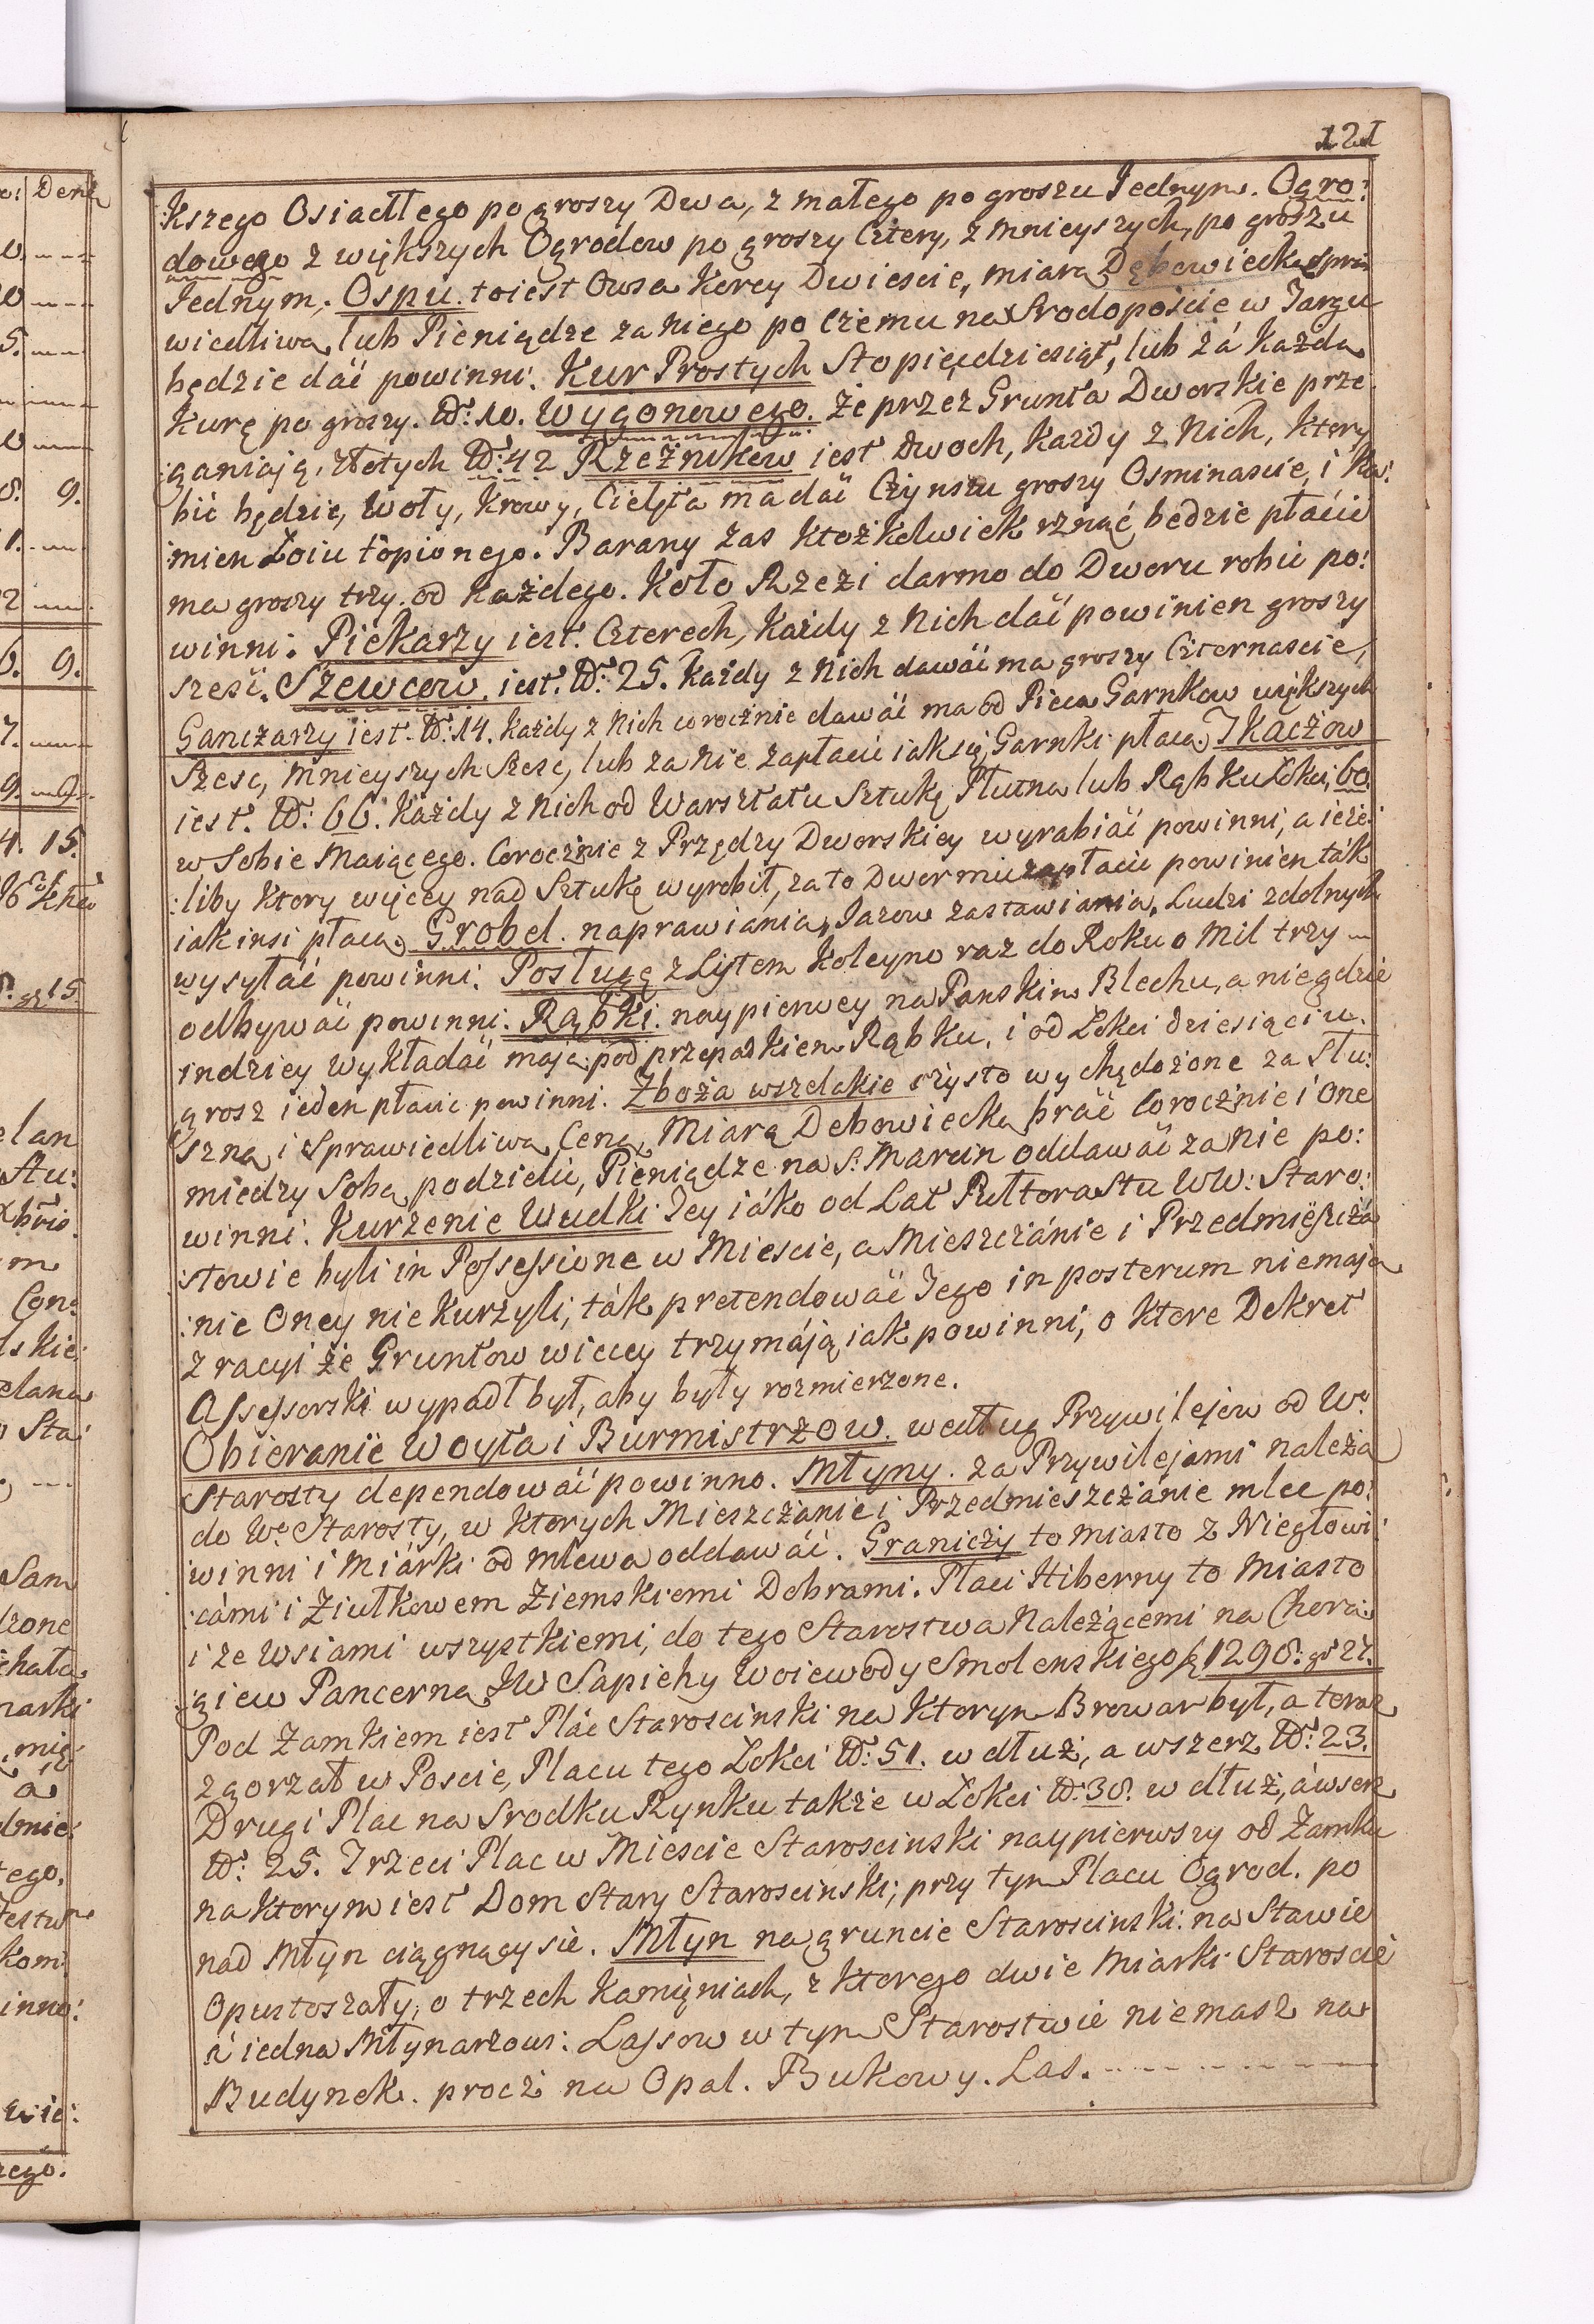 121
kszego Osiadłego po groszy Dwa, z małego po groszu Jednym. Ogro:
dowego z większych Ogrodow po groszy Cztery, z mnieyszych, po groszu
Jednym. Ospu. toiest Owsa Korcy Dwiescie, miarą Dębowiecką spra
wiedliwą, lub Pieniądze za niego po czemu na Srodopoście w Targu
będzie dać powinni. Kur Prostych Sto pięcdziesiąt, lub zá każdą
Kurę po groszy. N: 10. Wygonowego. że przez Grunta Dworskie prze
:ganiaią, złotych N: 42 Rzeźnikow iest dwoch, każdy z Nich, ktory
bić będzie, Woły, Krowy, Cielęta ma dać Czynszu groszy Osminascie, i Ka:
:mien Łoiu topionego. Barany zas ktożkolwiek rznąć będzie płácić
ma groszy trzy. od każdego. Koło Rzezi darmo do Dworu robić po:
winni. Piekarzy iest. Czterech, Każdy z Nich dać powinien groszy
szesć. Szewcow. iest. N: 25. Każdy z Nich dawáć ma groszy Czternascie,
Ganczarzy iest. N: 14. Każdy z Nich corocznie dawáć ma od Pieca Garnkow większych
Szesc, mnieyszych Szesc, lub za nie zapłacić iak się Garnki płacą. Tkaczow
iest. N: 66. Każdy z Nich od Warsztatu Sztukę Płutna lub Rąbku Łokci 60.
w Sobie Maiącego. Corocznie z Przędzy Dworskiey wyrabiáć powinni, a ieże:
:liby ktory więcey nad Sztukę wyrobił, za to Dwor mu zapłacić powinien ták
iak insi płacą. Grobel. naprawiania, Jazow zastawiania, Ludzi zdolnych
wysyłáć powinni. Posługę z Listem koleyno raz do Roku o Mil trzy
odbywáć powinni. Rąbki. naypierwey na Panskim Blechu, a nie gdzie
indziey wykładáć maią pod przepadkiem Rąbku, i od Łokci dziesiąciu.
grosz ieden płacic powinni. Zboża wszelakie czysto wychędożone za Słu:
szną i Sprawiedliwą Cenę, Miarą Debowiecką bráć Corocznie i One
miedzy Sobą podzielić, Pieniądze na S. Marcin oddawáć za nie po:
winni. Kurzenie Wudki Jey iáko od Lat Pułtora Stu WW: Staro:
:stowie byli in Possessione w Miescie, a Mieszczánie i Przedmieszczá
:nie Oney nie Kurzyli, ták pretendowáć Jego in posterum niemaią
z racyi że Gruntow wiecey trzymáją iak powinni, o ktore Dekret
Assessorski wypadł był, aby były rozmierzone.
Obieranie Woyta i Burmistrzow. według Przywilejow od We
Starosty dependowáć powinno. Młyny. za Przywilejami należą
do We Starosty, w ktorych Mieszczánie i Przedmieszczánie mlec po:
winni i Miárki od mlewa oddawáć. Graniczy to miasto z Niegłowi:
:cámi i Ziułkowem Ziemskiemi Dobrami. Płaci Hiberny to Miasto
i ze Wsiami wszystkiemi, do tego Starostwa Należącemi na Chora:
:giew Pancerną JW Sapiehy Woiewody Smolenskiego fl 1298: gr 27.
Pod Zamkiem iest Plác Staroscinski na ktorym Browar był, a teraz
zgorzał w Poscie, Placu tego Łokci N: 51. w dłuż, a wszerz N: 23.
Drugi Plac na Srodku Rynku także w Łokci N: 38. w dłuż, á wserz
N: 25. Trzeci Plac w Miescie Staroscinski naypierwszy od Zamku
na ktorym iest Dom Stary Staroscinski, przy tym Placu Ogrod. po
nad Młyn ciągnący sie. Młyn na gruncie Staroscinski. na Stawie
Opustoszały, o trzech Kamięniach, z ktorego dwie Miarki Staroscie
á iedna Młynarzowi: Lassow w tym Starostwie niemasz na
Budynek. procż na Opał. Bukowy. Las.